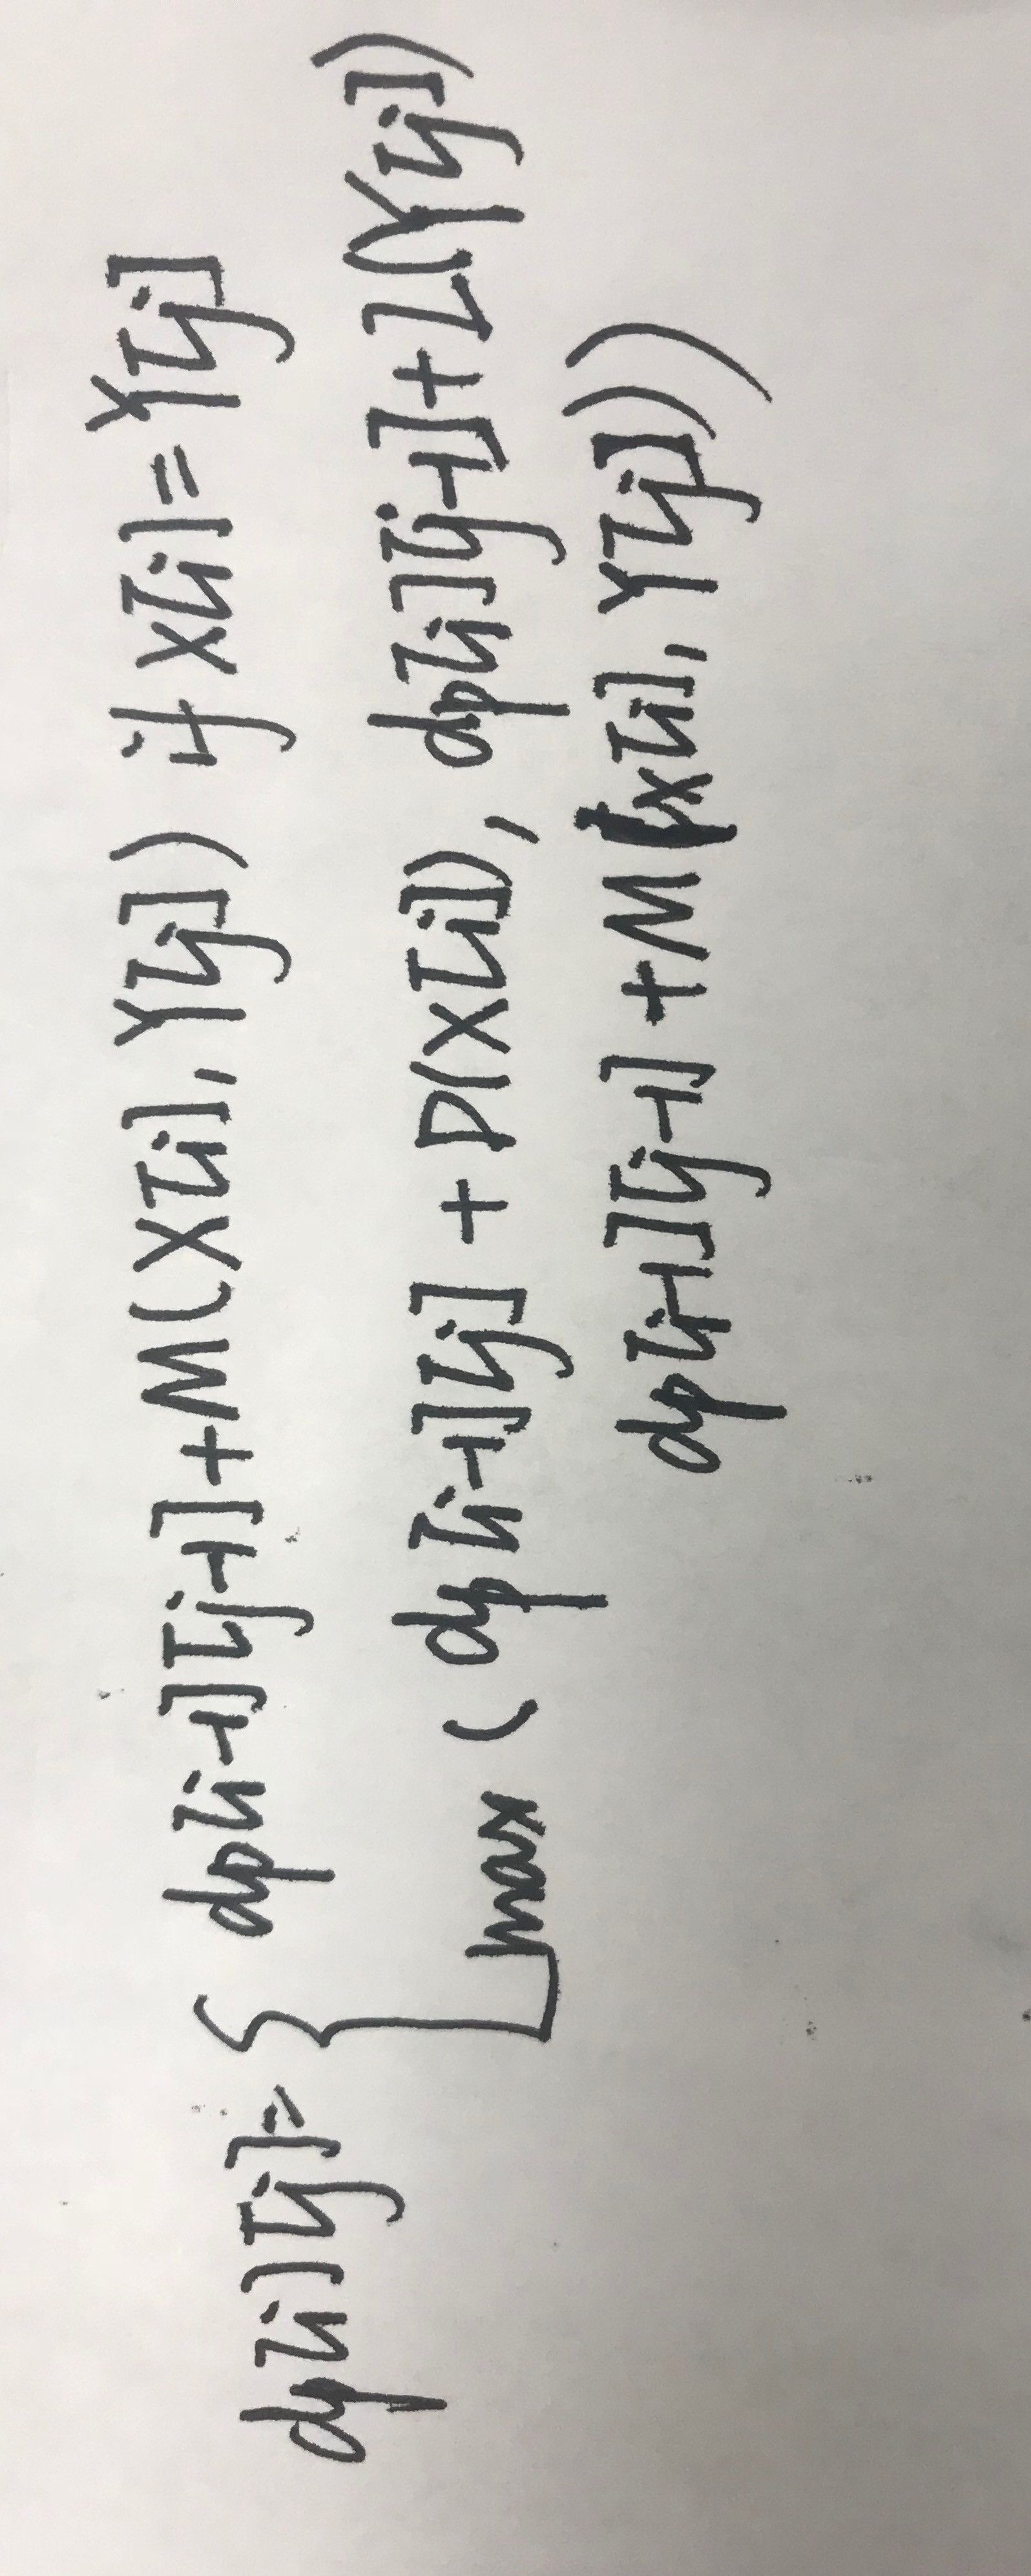 dp[i][j] = { dp[i-1][j-1]+M(X[i], Y[j]) if X[i]=Y[j]
max (dp[i-1][j] + D(X[i]), dp[i][j-1]+I(Y[j])
dp[i-1][j-1] +M(X[i], Y[j]))